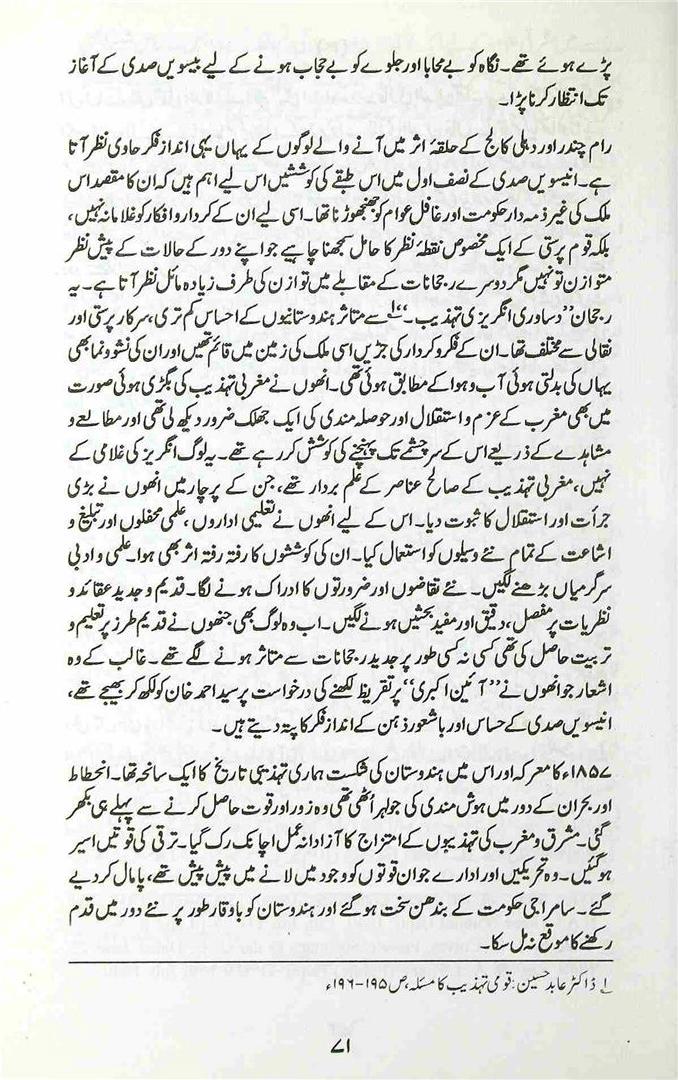 پڑے ہوئے تھے۔ نگاہ کو بے محابا اور جلوے کو بے حجاب ہونے کے لیے بیسویں صدی کے آغاز
تک انتظار کرنا پڑا۔
رام چندر اور دہلی کالج کے حلقۂ اثر میں آنے والے لوگوں کے یہاں یہی انداز فکر حاوی نظر آتا
ہے۔ انیسویں صدی کے نصف اول میں اس طبقے کی کوششیں اس لیے اہم ہیں کہ ان کا مقصد اس
ملک کی غیر ذمہ دار حکومت اور غافل عوام کو جھنجھوڑنا تھا۔ اسی لیے ان کے کردار و افکار کو غلامانہ نہیں،
بلکہ قوم پرستی کے ایک مخصوص نقطۂ نظر کا حامل سمجھنا چاہیے جو اپنے دور کے حالات کے پیش نظر
متوازن تو نہیں مگر دوسرے رجحانات کے مقابلے میں توازن کی طرف زیادہ مائل نظر آتا ہے۔ یہ
رجحان ”دساوری انگریزی تہذیب۔“۱؎ سے متاثر ہندوستانیوں کے احساس کم تری، سرکار پرستی اور
نقالی سے مختلف تھا۔ ان کے فکر و کردار کی جڑیں اسی ملک کی زمین میں قائم تھیں اور ان کی نشو و نما بھی
یہاں کی بدلتی ہوئی آب و ہوا کے مطابق ہوئی تھی۔ انھوں نے مغربی تہذیب کی بگڑی ہوئی صورت
میں بھی مغرب کے عزم و استقلال اور حوصلہ مندی کی ایک جھلک ضرور دیکھ لی تھی اور مطالعے و
مشاہدے کے ذریعے اس کے سرچشمے تک پہنچنے کی کوشش کر رہے تھے۔ یہ لوگ انگریز کی غلامی کے
نہیں، مغربی تہذیب کے صالح عناصر کے علم بردار تھے، جن کے پرچار میں انھوں نے بڑی
جرأت اور استقلال کا ثبوت دیا۔ اس کے لیے انھوں نے تعلیمی اداروں، علمی محفلوں اور تبلیغ و
اشاعت کے تمام نئے وسیلوں کو استعمال کیا۔ ان کی کوششوں کا رفتہ رفتہ اثر بھی ہوا۔ علمی و ادبی
سرگرمیاں بڑھنے لگیں۔ نئے تقاضوں اور ضرورتوں کا ادراک ہونے لگا۔ قدیم و جدید عقائد و
نظریات پر مفصل، دقیق اور مفید بحثیں ہونے لگیں۔ اب وہ لوگ بھی جنھوں نے قدیم طرز پر تعلیم و
تربیت حاصل کی تھی کسی نہ کسی طور پر جدید رجحانات سے متاثر ہونے لگے تھے۔ غالب کے وہ
اشعار جو انھوں نے ”آئین اکبری“ پر تقریظ لکھنے کی درخواست پر سید احمد خان کو لکھ کر بھیجے تھے،
انیسویں صدی کے حساس اور باشعور ذہن کے انداز فکر کا پتہ دیتے ہیں۔
۱۸۵۷ء کا معرکہ اور اس میں ہندوستان کی شکست ہماری تہذیبی تاریخ کا ایک سانحہ تھا۔ انحطاط
اور بحران کے دور میں ہوش مندی کی جو لہر اُٹھی تھی وہ زور اور قوت حاصل کرنے سے پہلے ہی بکھر
گئی۔ مشرق و مغرب کی تہذیبوں کے امتزاج کا آزادانہ عمل اچانک رک گیا۔ ترقی کی قوتیں اسیر
ہو گئیں۔ وہ تحریکیں اور ادارے جو ان قوتوں کو وجود میں لانے میں پیش پیش تھے، پامال کر دیے
گئے۔ سامراجی حکومت کے بندھن سخت ہو گئے اور ہندوستان کو باوقار طور پر نئے دور میں قدم
رکھنے کا موقع نہ مل سکا۔
۱؎ ڈاکٹر عابد حسین: قومی تہذیب کا مسئلہ، ص ۱۹۵-۱۹۶ء
۷۱